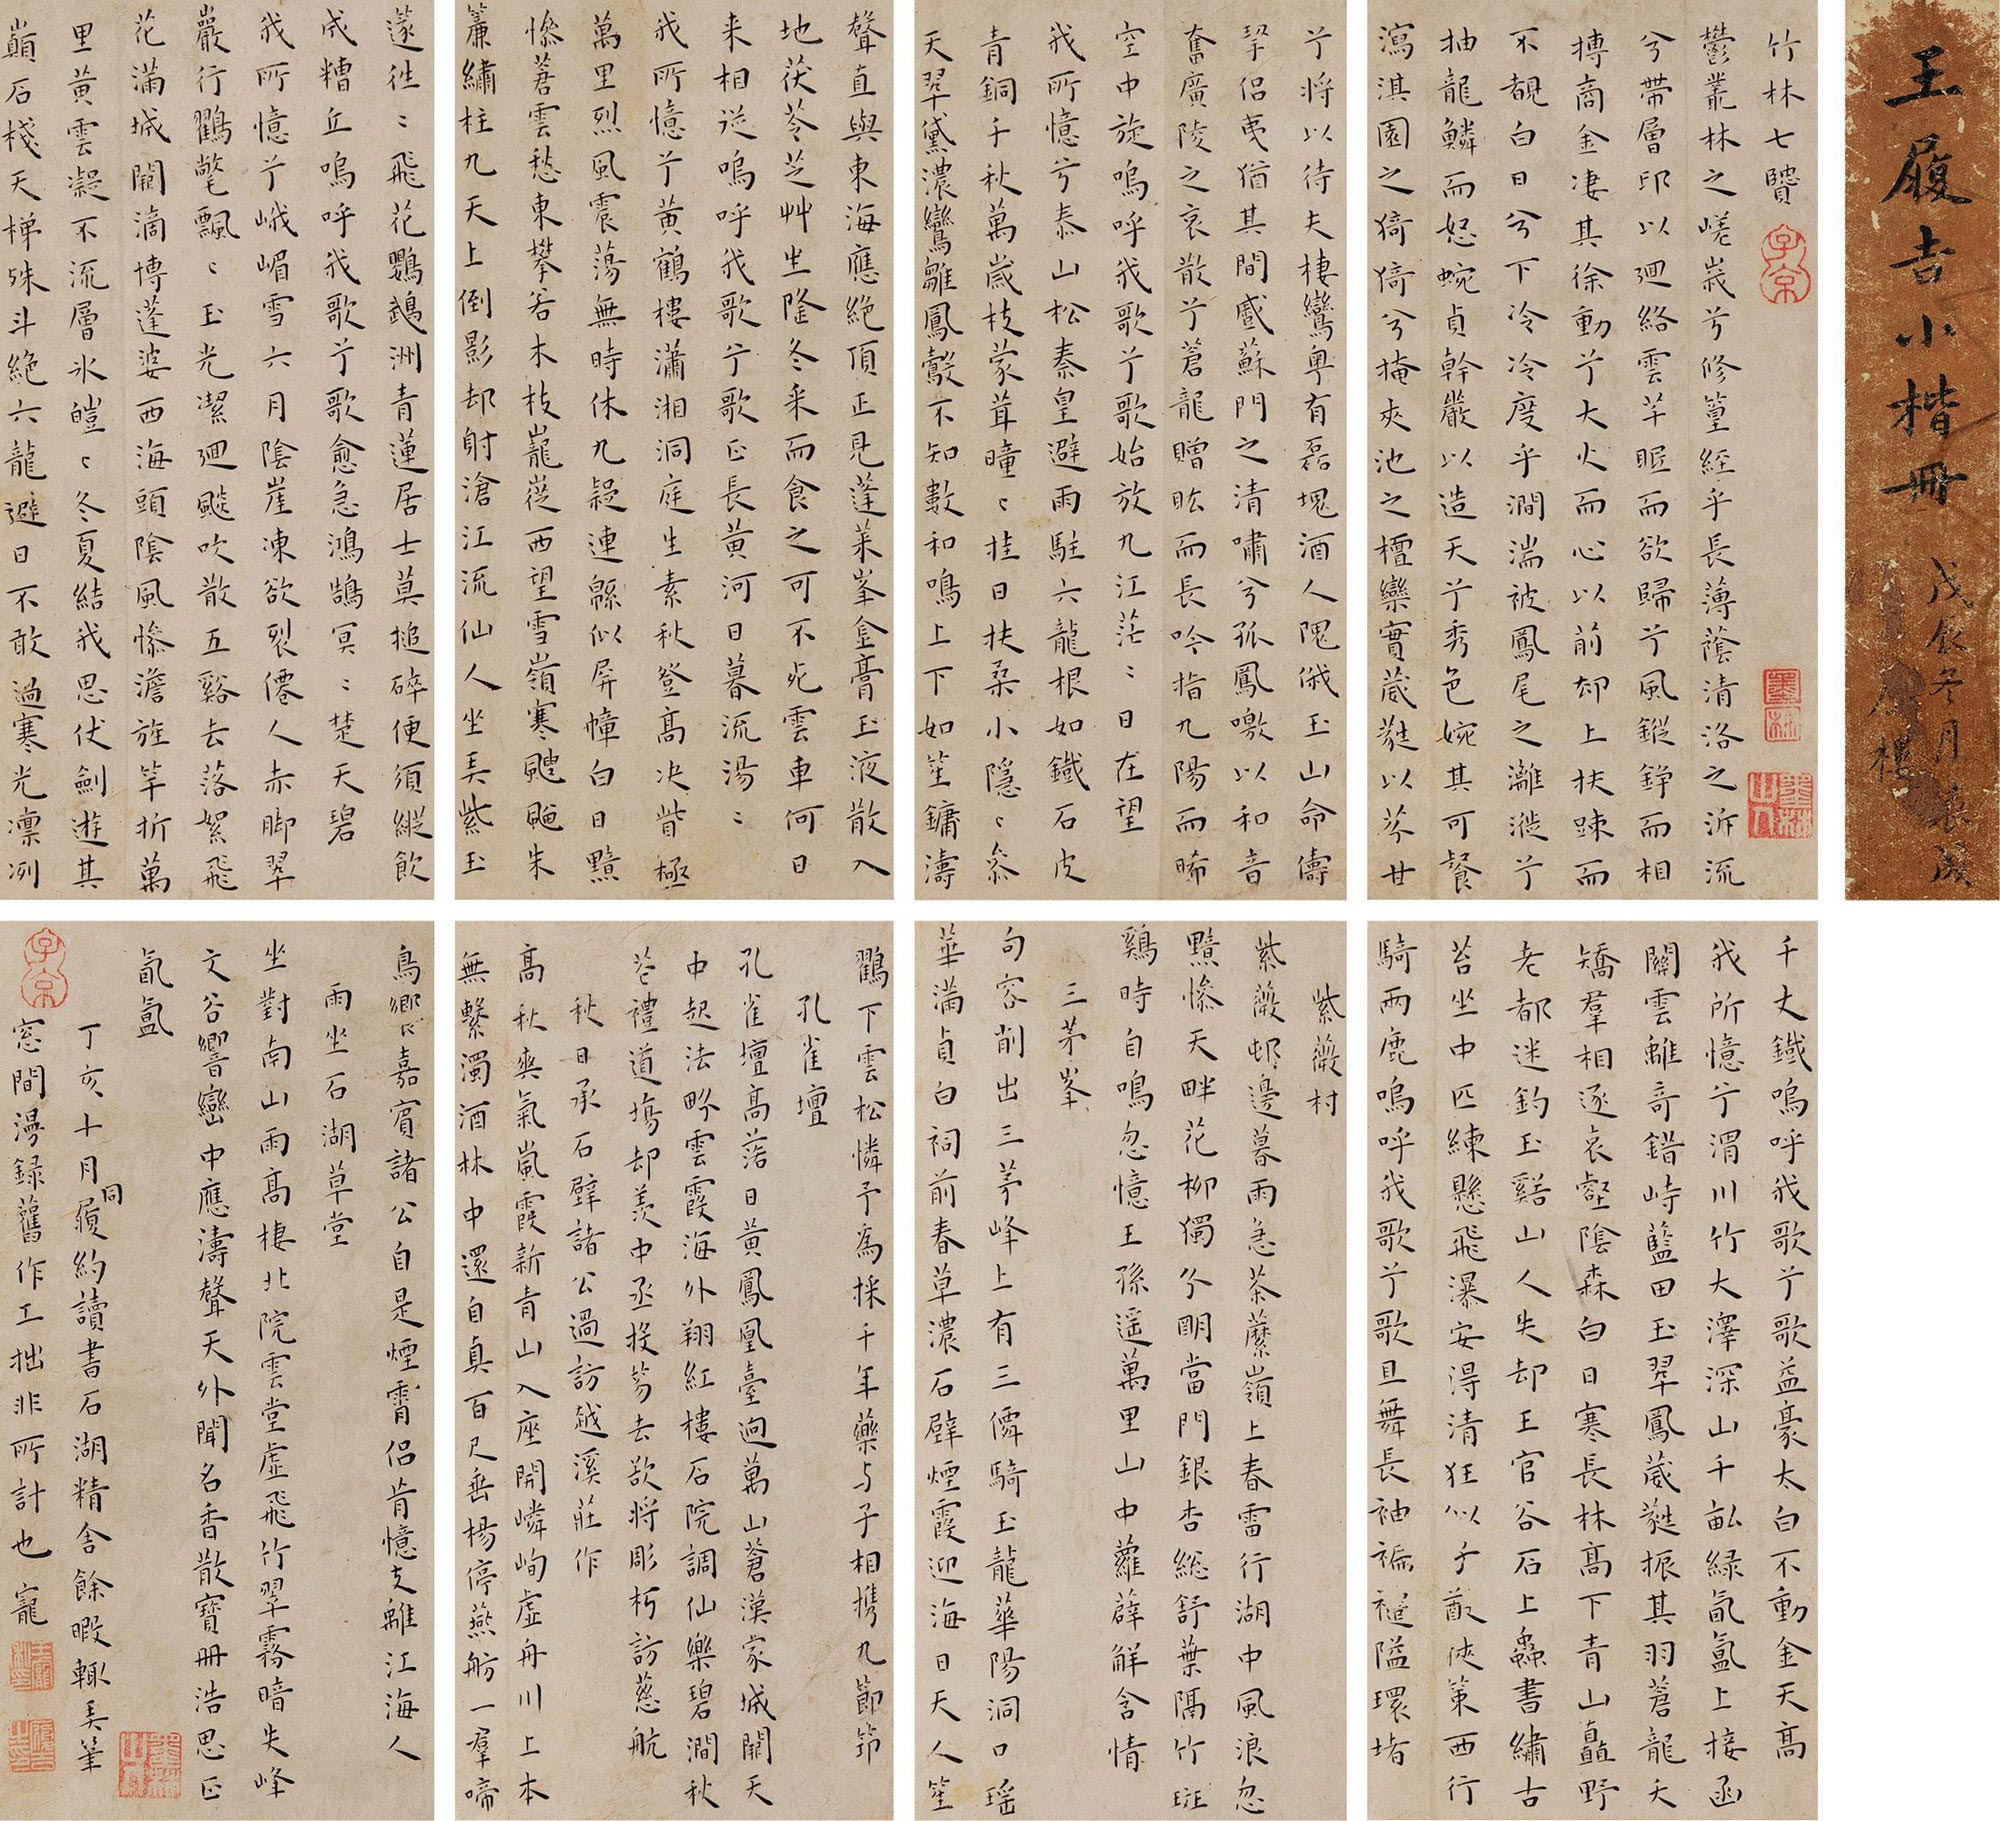 王履吉小楷冊
戊辰冬月裝成
竹林七贒
鬱叢林之嵯峩兮修篁經乎長薄蔭清洛之沂流
兮帶層邙以迴絡雲芊眠而欲歸兮風鏦錚而相
摶商金淒其徐動兮大火而心以前却上扶踈而
不覩白日兮下泠泠度乎澗湍被鳳尾之灕漇兮
抽龍鱗而怒蜿貞幹嚴以造天兮秀色婉其可餐
瀉淇園之猗猗兮掩夾池之檀欒實葳蕤以芬甘
兮將以待夫棲鸞粤有磊塊酒人隗俄玉山命儔
挈侣夷猶其間感蘇門之清嘯兮孤鳳噭以和音
奮廣陵之哀散兮蒼龍贈眩而長吟指九陽而晞
空中旋嗚呼我歌兮歌始放九江茫〻日在望
我所憶兮泰山松秦皇避雨駐六龍根如鐵石皮
青銅千秋萬歲枝蒙茸曈〻挂日扶桑小隱〻叅
天翠黛濃鸞雛鳳鷇不知數和鳴上下如笙鏞濤
聲直與東海應絶頂正見蓬萊峯金膏玉液散入
地茯苓芝艸坐隆冬采而食之可不死雲車何日
来相從嗚呼我歌兮歌正長黄河日暮流湯〻
我所憶兮黄鶴樓瀟湘洞庭生素秋登高决眥極
萬里烈風震蕩無時休九疑連緜似屏幛白日黯
慘蒼雲愁東攀若木枝巃嵸西望雪嶺寒颼飀朱
簾繡柱九天上倒影却射滄江流仙人坐弄紫玉
邃徃〻飛花鸚鵡洲青蓮居士莫搥碎便須縱飲
成糟丘嗚呼我歌兮歌愈急鴻鵠冥〻楚天碧
我所憶兮峨嵋雪六月陰崖凍欲裂僊人赤脚翠
巖行鸛氅飄〻玉光潔迴颷吹散五谿去落絮飛
花滿城闕滴博蓬婆西海頭陰風慘澹旌竿折萬
里黄雲凝不流層氷皚〻冬夏結我思伏劍遊其
巔石棧天梯殊斗絶六龍避日不敢過寒光凛冽
千丈鐵嗚呼我歌兮歌益豪太白不動金天高
我所憶兮渭川竹大澤深山千畝緑氤氲上接函
關雲離竒錯峙藍田玉翠鳳葳蕤振其羽蒼龍夭
矯羣相逐哀壑陰森白日寒長林高下青山矗野
老都迷釣玉谿山人失却王官谷石上蟲書繡古
苔坐中匹練懸飛瀑安得清狂似子猷俠策西行
騎兩鹿嗚呼我歌兮歌且舞長袖褊褼隘環堵
紫薇村
紫薇邨邊暮雨急茶蘼嶺上春雷行湖中風浪忽
黯慘天畔花柳獨分明當門銀杏総舒葉隔竹斑
鷄時自鳴忽憶王孫遥萬里山中蘿薜解含情
三茅峯
句容削出三茅峰上有三僊騎玉龍華陽洞口瑶
華滿貞白祠前春草濃石壁煙霞迎海日天人笙
鸛下雲松憐予爲採千年藥与子相携九節筇
孔雀壇
孔雀壇高落日黄鳳凰臺逈萬山蒼漢家城闕天
中起法界雲霞海外翔紅樓石院調仙樂碧澗秋
苍禮道塲却羡中丞投笏去欲將彫朽訪慈航
秋日承石壁諸公過訪越溪莊作
高秋爽氣嵐霞新青山入座開嶙峋虚舟川上本
無繫濁酒林中還自真百尺垂楊停燕舫一羣啼
鳥嚮嘉賓諸公自是煙霄侣肯憶支離江海人
雨坐石湖草堂
坐對南山雨高棲北院雲堂虚飛竹翠霧暗失峰
文谷響巒中應濤聲天外聞名香散寶冊浩思正
氤氲
丁亥十月同履約讀書石湖精舍餘暇輙弄筆
窓間漫録舊作工拙非所計也寵